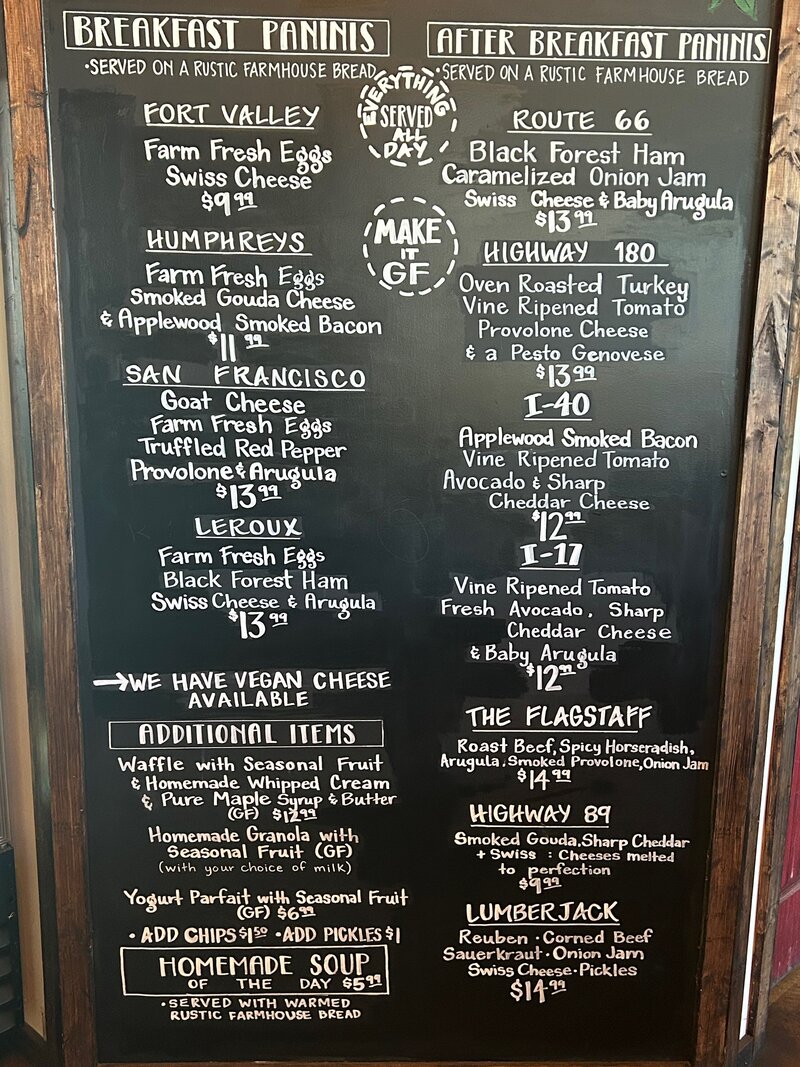 BREAKFAST PANINIS
•SERVED ON A RUSTIC FARMHOUSE BREAD
FORT VALLEY
Farm Fresh Eggs
Swiss Cheese
$9.99
HUMPHREYS
Farm Fresh Eggs
Smoked Gouda Cheese
& Applewood Smoked Bacon
$11.99
SAN FRANCISCO
Goat Cheese
Farm Fresh Eggs
Truffled Red Pepper
Provolone & Arugula
$13.99
LEROUX
Farm Fresh Eggs
Black Forest Ham
Swiss Cheese & Arugula
$13.99
→WE HAVE VEGAN CHEESE
AVAILABLE
ADDITIONAL ITEMS
Waffle with Seasonal Fruit
& Homemade Whipped Cream
& Pure Maple Syrup & Butter
(GF) $12.99
Homemade Granola with
Seasonal Fruit (GF)
(with your choice of milk)
Yogurt Parfait with Seasonal Fruit
(GF) $6.99
• ADD CHIPS $1.50 •ADD PICKLES $1
HOMEMADE SOUP
OF THE DAY $5.99
•SERVED WITH WARMED
RUSTIC FARMHOUSE BREAD
EVERYTHING
SERVED
ALL
DAY
MAKE
IT
GF
AFTER BREAKFAST PANINIS
•SERVED ON A RUSTIC FARMHOUSE BREAD
ROUTE 66
Black Forest Ham
Caramelized Onion Jam
Swiss Cheese & Baby Arugula
$13.99
HIGHWAY 180
Oven Roasted Turkey
Vine Ripened Tomato
Provolone Cheese
& a Pesto Genovese
$13.99
I-40
Applewood Smoked Bacon
Vine Ripened Tomato
Avocado & Sharp
Cheddar Cheese
$12.99
I-17
Vine Ripened Tomato
Fresh Avocado, Sharp
Cheddar Cheese
& Baby Arugula
$12.99
THE FLAGSTAFF
Roast Beef, Spicy Horseradish,
Arugula, Smoked Provolone, Onion Jam
$14.99
HIGHWAY 89
Smoked Gouda, Sharp Cheddar
+ Swiss : Cheeses melted
to perfection
$9.99
LUMBERJACK
Reuben • Corned Beef
Sauerkraut • Onion Jam
Swiss Cheese • Pickles
$14.99